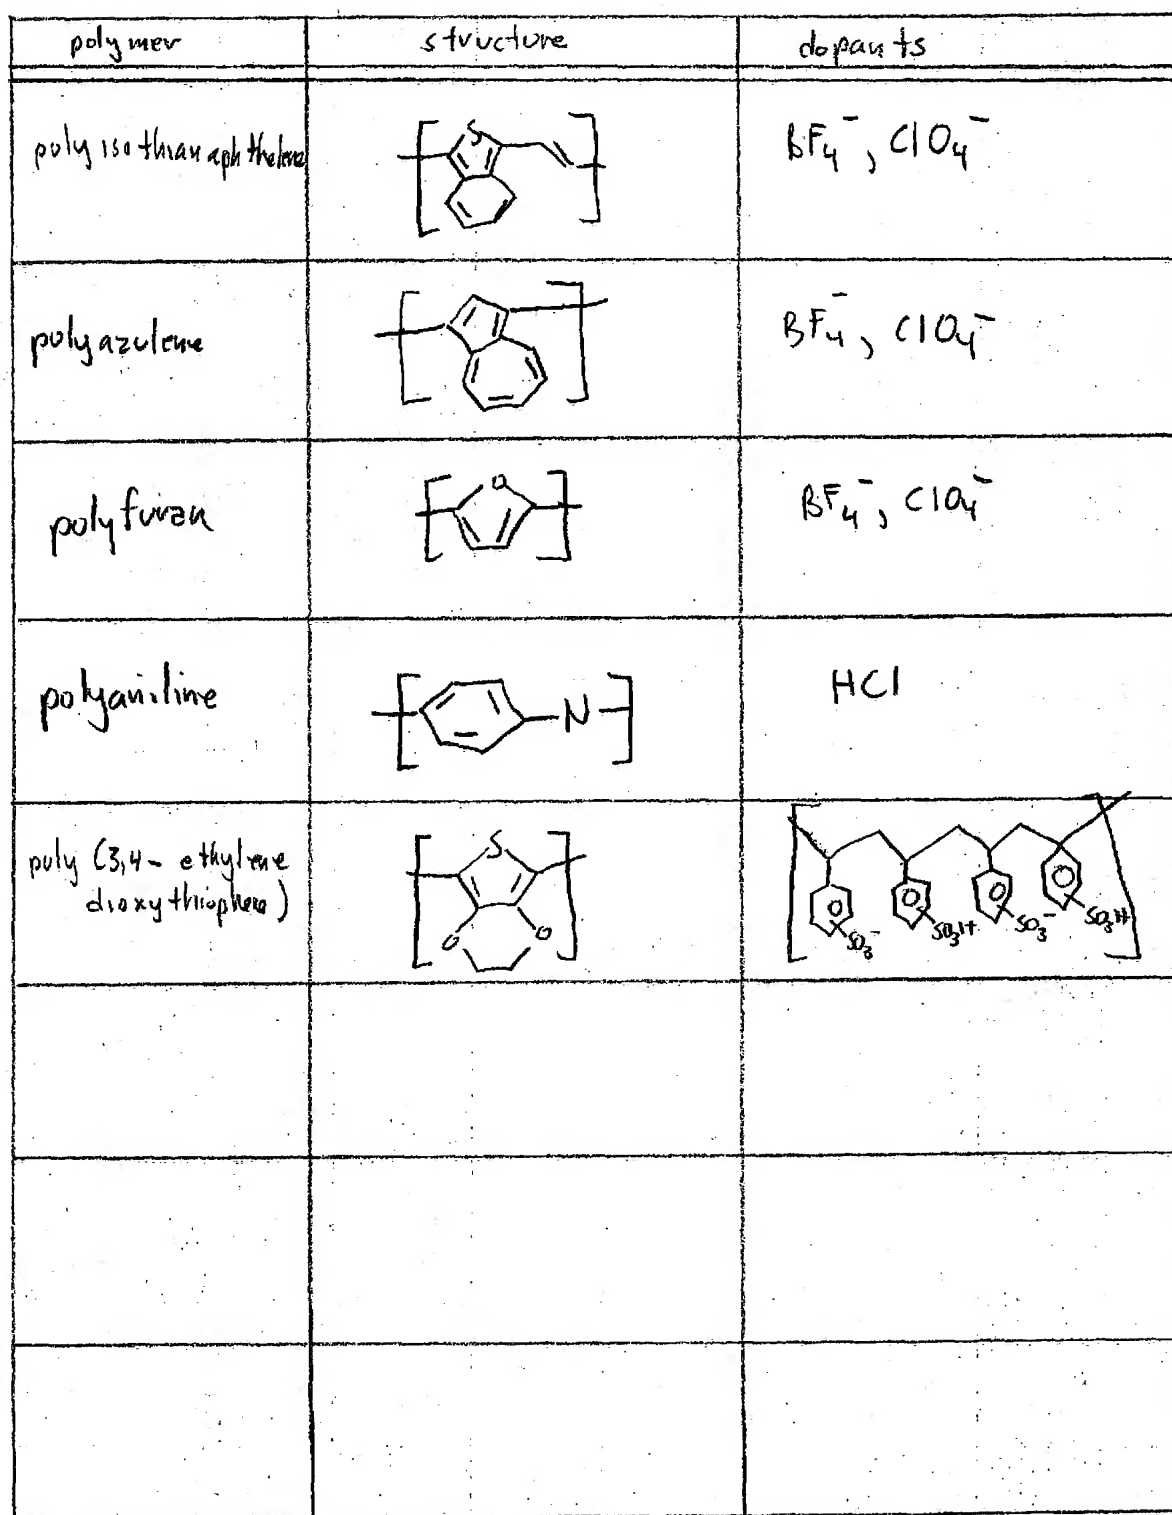 polymer structure dopants
polyisothianaphthelene S BF₄⁻, ClO₄⁻
polyazulene BF₄⁻, ClO₄⁻
polyfuran O BF₄⁻, ClO₄⁻
polyaniline N HCl
poly (3,4-ethylene S
dioxythiophene) O O SO₃⁻ SO₃H SO₃⁻ SO₃H